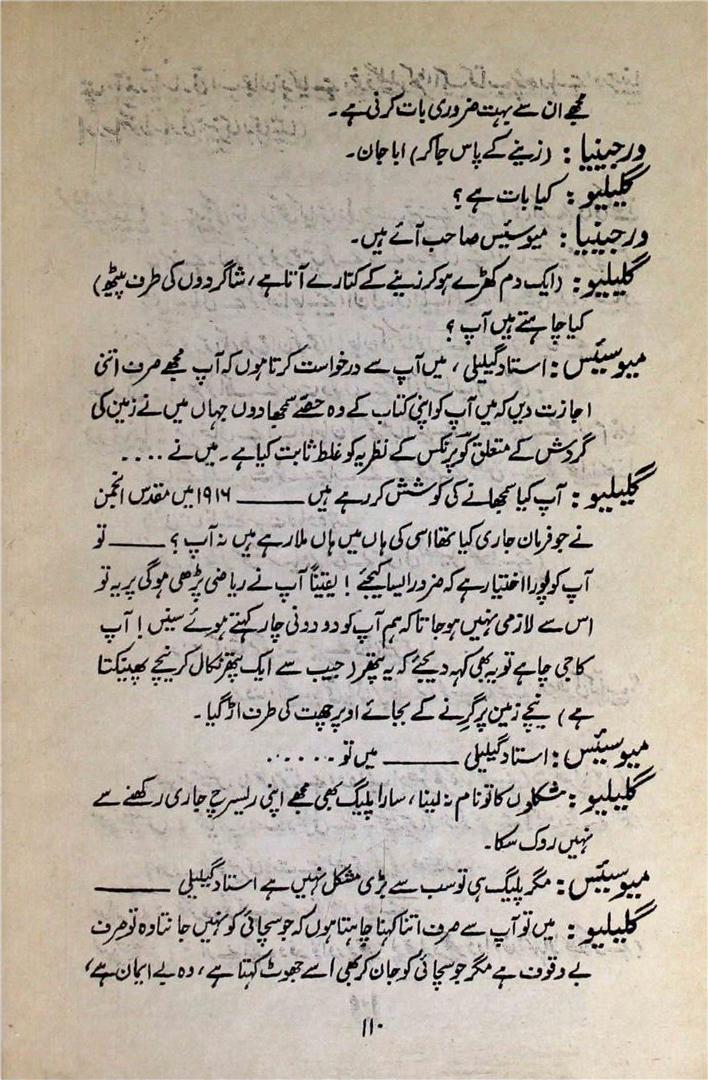 مجھے ان سے بہت ضروری بات کرنی ہے۔
ورجینیا : (زینے کے پاس جاکر) ابا جان۔
گلیلیو : کیا بات ہے ؟
ورجینیا : میوسئیس صاحب آئے ہیں۔
گلیلیو : (ایک دم کھڑے ہوکر زینے کے کنارے آتا ہے، شاگردوں کی طرف پیٹھ)
کیا چاہتے ہیں آپ ؟
میوسئیس : استاد گیلیلی ، میں آپ سے درخواست کرتا ہوں کہ آپ مجھے صرف اتنی
اجازت دیں کہ میں آپ کو اپنی کتاب کے وہ حصّے سمجھا دوں جہاں میں نے زمین کی
گردش کے متعلق کوپرنکس کے نظریہ کو غلط ثابت کیا ہے۔ میں نے ....
گلیلیو : آپ کیا سمجھانے کی کوشش کر رہے ہیں ــــــــ ۱۹۱۶ میں مقدس انجمن
نے جو فرمان جاری کیا تھا اسی کی ہاں میں ہاں ملا رہے ہیں نہ آپ ؟ ــــــــ تو
آپ کو پورا اختیار ہے کہ ضرور ایسا کیجئے ! یقیناً آپ نے ریاضی پڑھی ہوگی پر یہ تو
اس سے لازمی نہیں ہو جاتا کہ ہم آپ کو دو دونی چار کہتے ہوئے سنیں ! آپ
کا جی چاہے تو یہ بھی کہہ دیجئے کہ یہ پتھر (جیب سے ایک پتھر نکال کر نیچے پھینکتا
ہے) نیچے زمین پر گرنے کے بجائے اوپر چھت کی طرف اڑ گیا ۔
میوسئیس : استاد گیلیلی ــــــــ میں تو ......
گلیلیو : مشکلوں کا تو نام نہ لینا ، سارا پلیگ بھی مجھے اپنی ریسرچ جاری رکھنے سے
نہیں روک سکا۔
میوسئیس : مگر پلیگ ہی تو سب سے بڑی مشکل نہیں ہے استاد گیلیلی ــــــــ
گلیلیو : میں تو آپ سے صرف اتنا کہنا چاہتا ہوں کہ جو سچائی کو نہیں جانتا وہ تو صرف
بے وقوف ہے مگر جو سچائی کو جان کر بھی اسے جھوٹ کہتا ہے ، وہ بے ایمان ہے،
۱۱۰